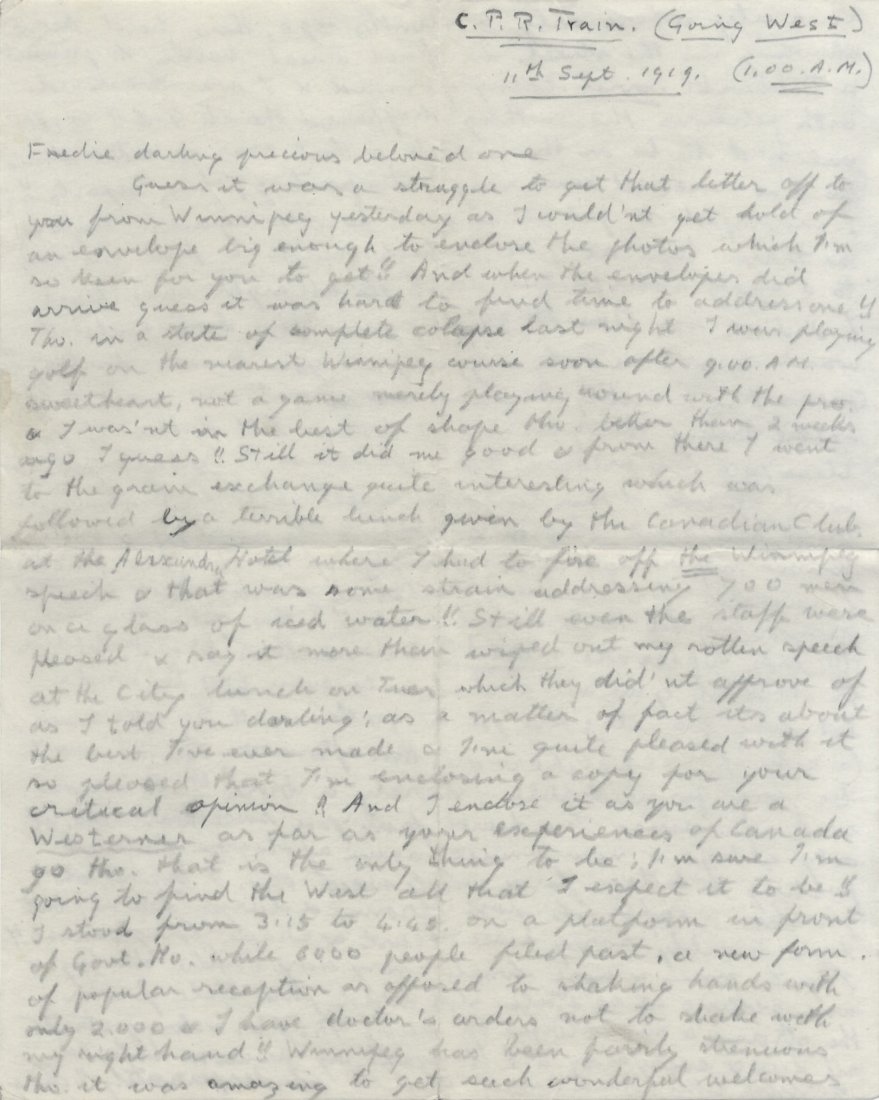 C.P.R. Train. (Going West)
11th Sept. 1919. (1.00. A.M.)
Fredie darling precious beloved one
Guess it was a struggle to get that letter off to
you from Winnipeg yesterday as I would'nt get hold of
an envelope big enough to enclose the photos which I'm
so keen for you to get!! And when the envelopes did
arrive guess it was hard to find time to address one!!
Tho. in a state of complete colapse last night I was playing
golf on the nearest Winnipeg course soon after 9.00. A.M.
sweetheart, not a game merely playing round with the pro.
& I was'nt in the best of shape tho. better than 2 weeks
ago I guess!! Still it did me good & from there I went
to the grain exchange quite interesting which was
followed by a terrible lunch given by the Canadian Club.
at the Alexandra Hotel where I had to fire off the Winnipeg
speech & that was some strain addressing 700 men
on a glass of iced water!! Still even the staff were
pleased & say it more than wiped out my rotten speech
at the City lunch on Tues which they did'nt approve of
as I told you darling; as a matter of fact its about
the best I've ever made & I'm quite pleased with it
so pleased that I'm enclosing a copy for your
critical opinion!! And I enclose it as you are a
Westerner as far as your experiences of Canada
go tho. that is the only thing to be; I'm sure I'm
going to find the West all that I expect it to be!!
I stood from 3.15 to 4.45. on a platform in front
of Govt. Ho. while 6000 people filed past, a new form.
of popular reception as opposed to shaking hands with
only 2.000 & I have doctor's orders not to shake with
my right hand!! Winnipeg has been fairly strenuous
tho. it was amazing to get such wonderful welcomes